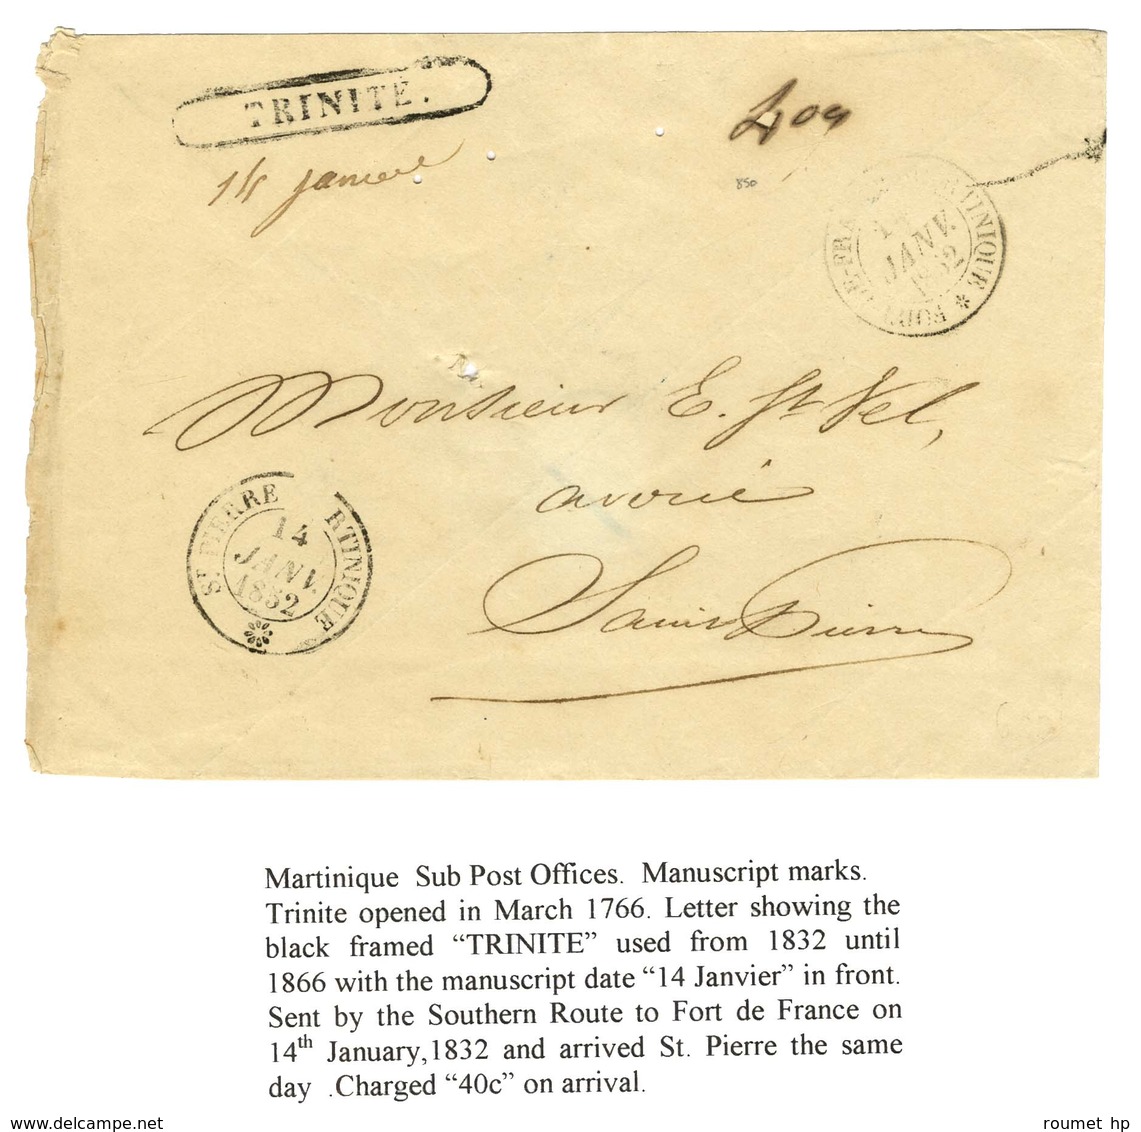 TRINITE.
14 janvier
40c
850
FORT DE-FRANCE MARTINIQUE
14
JANV.
1852
Monsieur E. St Vel,
avoué
Saint Pierre
ST PIERRE RTINIQUE
14
JANV.
1852
Martinique Sub Post Offices. Manuscript marks.
Trinite opened in March 1766. Letter showing the
black framed “TRINITE” used from 1832 until
1866 with the manuscript date “14 Janvier” in front.
Sent by the Southern Route to Fort de France on
14th January,1832 and arrived St. Pierre the same
day .Charged “40c” on arrival.
www.delcampe.net
roumet hp